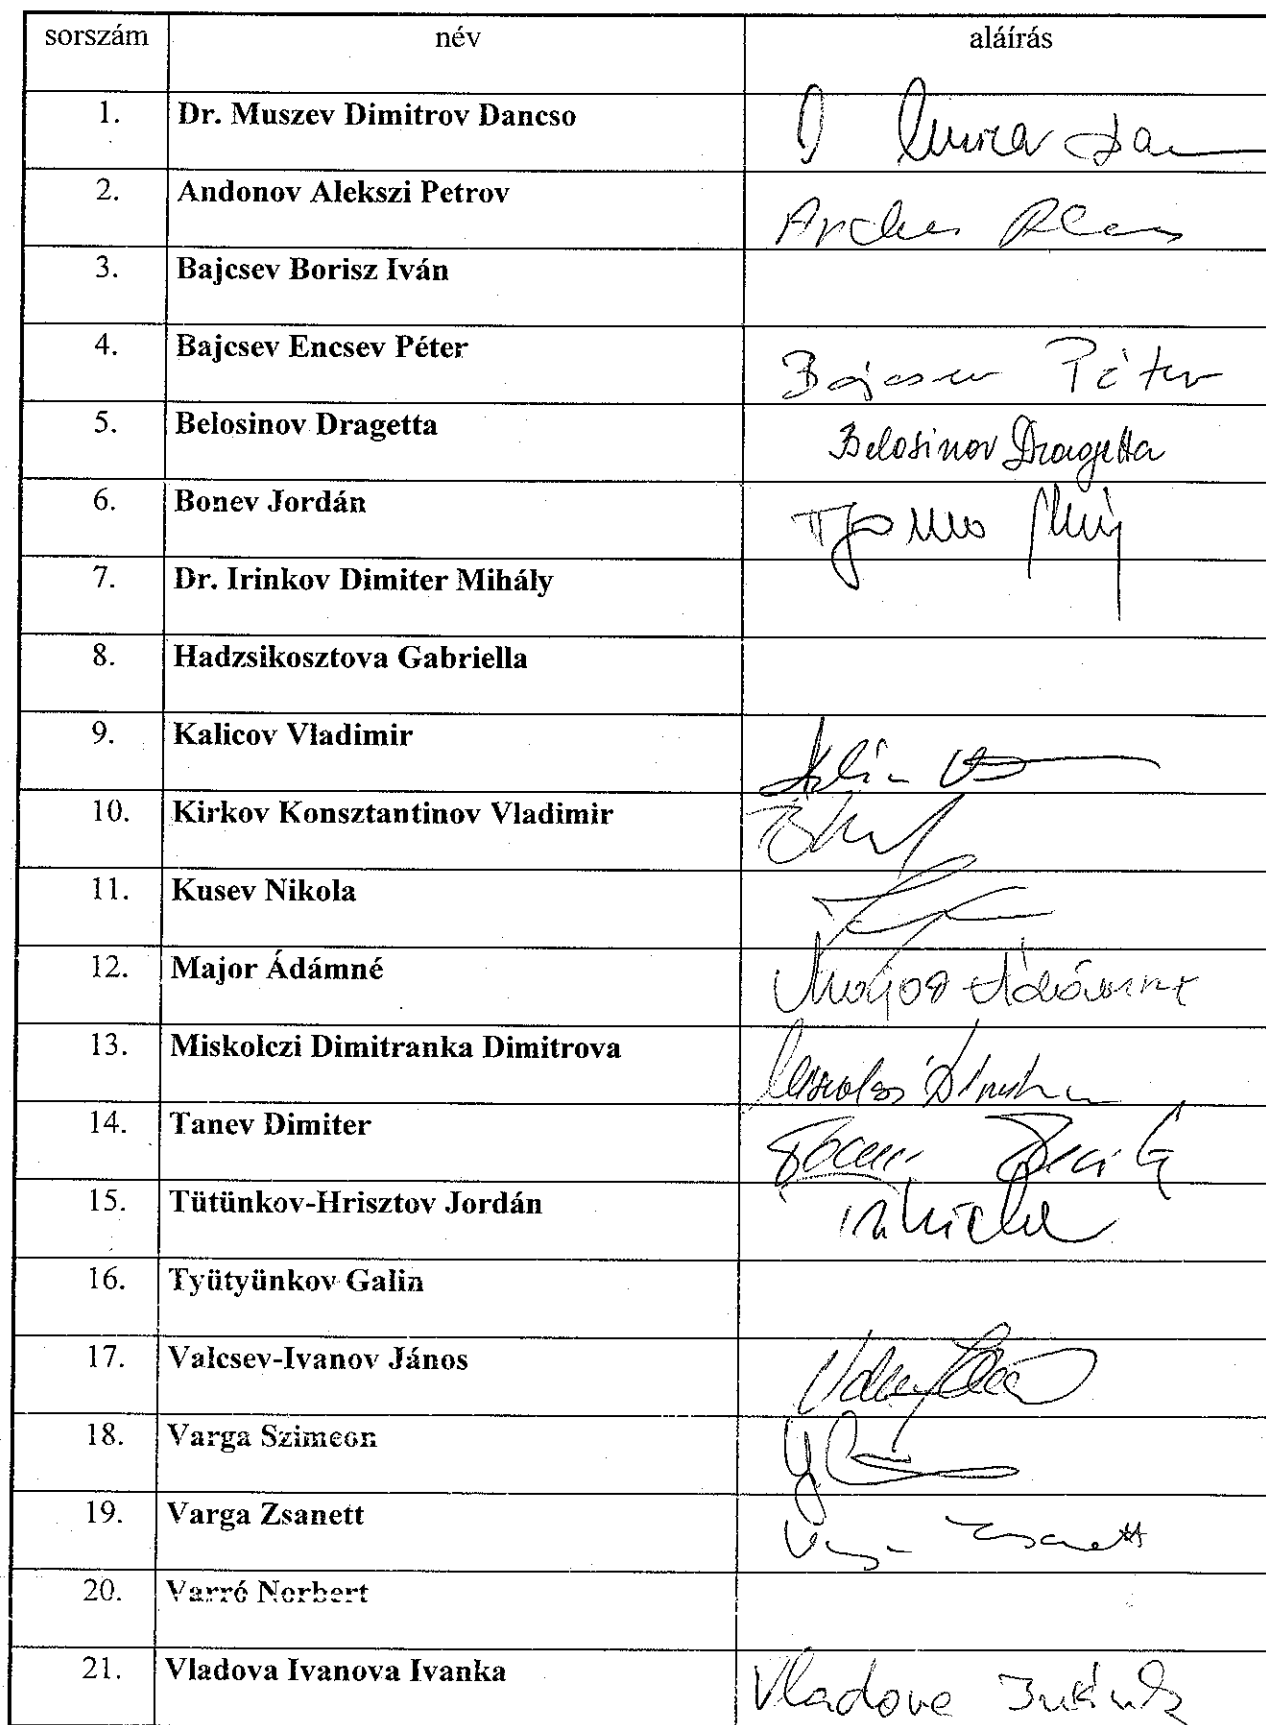 sorszám név aláírás
1. Dr. Muszev Dimitrov Dancso
2. Andonov Alekszi Petrov
3. Bajcsev Borisz Iván
4. Bajcsev Encsev Péter Bajcsev Péter
5. Belosinov Dragetta Belosinov Dragetta
6. Bonev Jordán
7. Dr. Irinkov Dimiter Mihály
8. Hadzsikosztova Gabriella
9. Kalicov Vladimir
10. Kirkov Konsztantinov Vladimir
11. Kusev Nikola
12. Major Ádámné Major Ádámné
13. Miskolczi Dimitranka Dimitrova
14. Tanev Dimiter
15. Tütünkov-Hrisztov Jordán
16. Tyütyünkov Galin
17. Valcsev-Ivanov János
18. Varga Szimeon
19. Varga Zsanett Varga Zsanett
20. Varró Norbert
21. Vladova Ivanova Ivanka Vladova